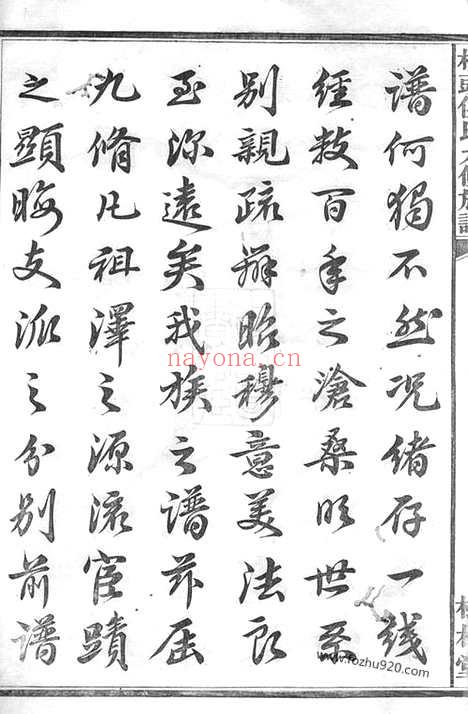 譜何獨不然况緒存一綫
經数百年之滄桑明世系
别親疏辨昭穆意美法良
至深遠矣我族之譜茲届
九脩凡祖澤之源流宦蹟
之顯晦支派之分别前譜
nayona.cn
www.fozhu920.com